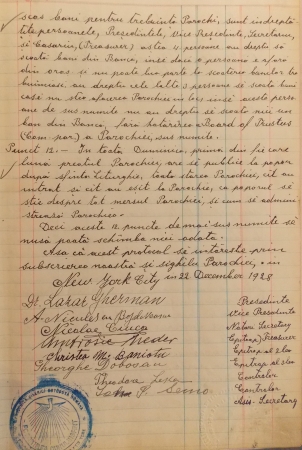 scos bani pentru trebuinta Parochi, sunt indreptă
tite persoanele, Presidentele, Vice Presidente, Secretaru,
si Casaru, (Treasurer) astea 4 persoane au dreptu să
scoată bani din Banca, insă daca o persoana e afara
din oras, si nu poate lua parte la scoaterea banilor tre
buinciosi, au dreptu cele latte 3 persoane să scoată bani
casă nu stie afacerea Parochiei in loc, insă aceste persoa
ne de sus numite nu au dreptu să scoată nici un
ban din Banca, fara hotărirea Board of Trustees
(Com. par.) a Parochiei, sus numite.
Punct 12.- In toata Dumineca, prima din fie care
lună preatul Parochiei, are să publice la popor
după sfinta Liturghie, toata starea Parochiei, cit au
intrat si cit au esit la Parochie, ca poporul să
stie despre tot mersul Parochiei, si cum se admini
streasă Parochia.
Deci aceste 12 puncte de mai sus numite să
nusă poată schimba nici odata.
Asa că acest protocol se intăreste prin
subscrierea noastră si sighiliu Parochiei, in
New York City in 22 December 1928
Dr. Lazar Gherman Presedinte
A. Niculescu Vice Presedinte
Nicolae Nature Secretary
Treasurer
Christea M.
Gheorghe Bobosan
Theodore Controlor
Controlor
Ass. Secretary